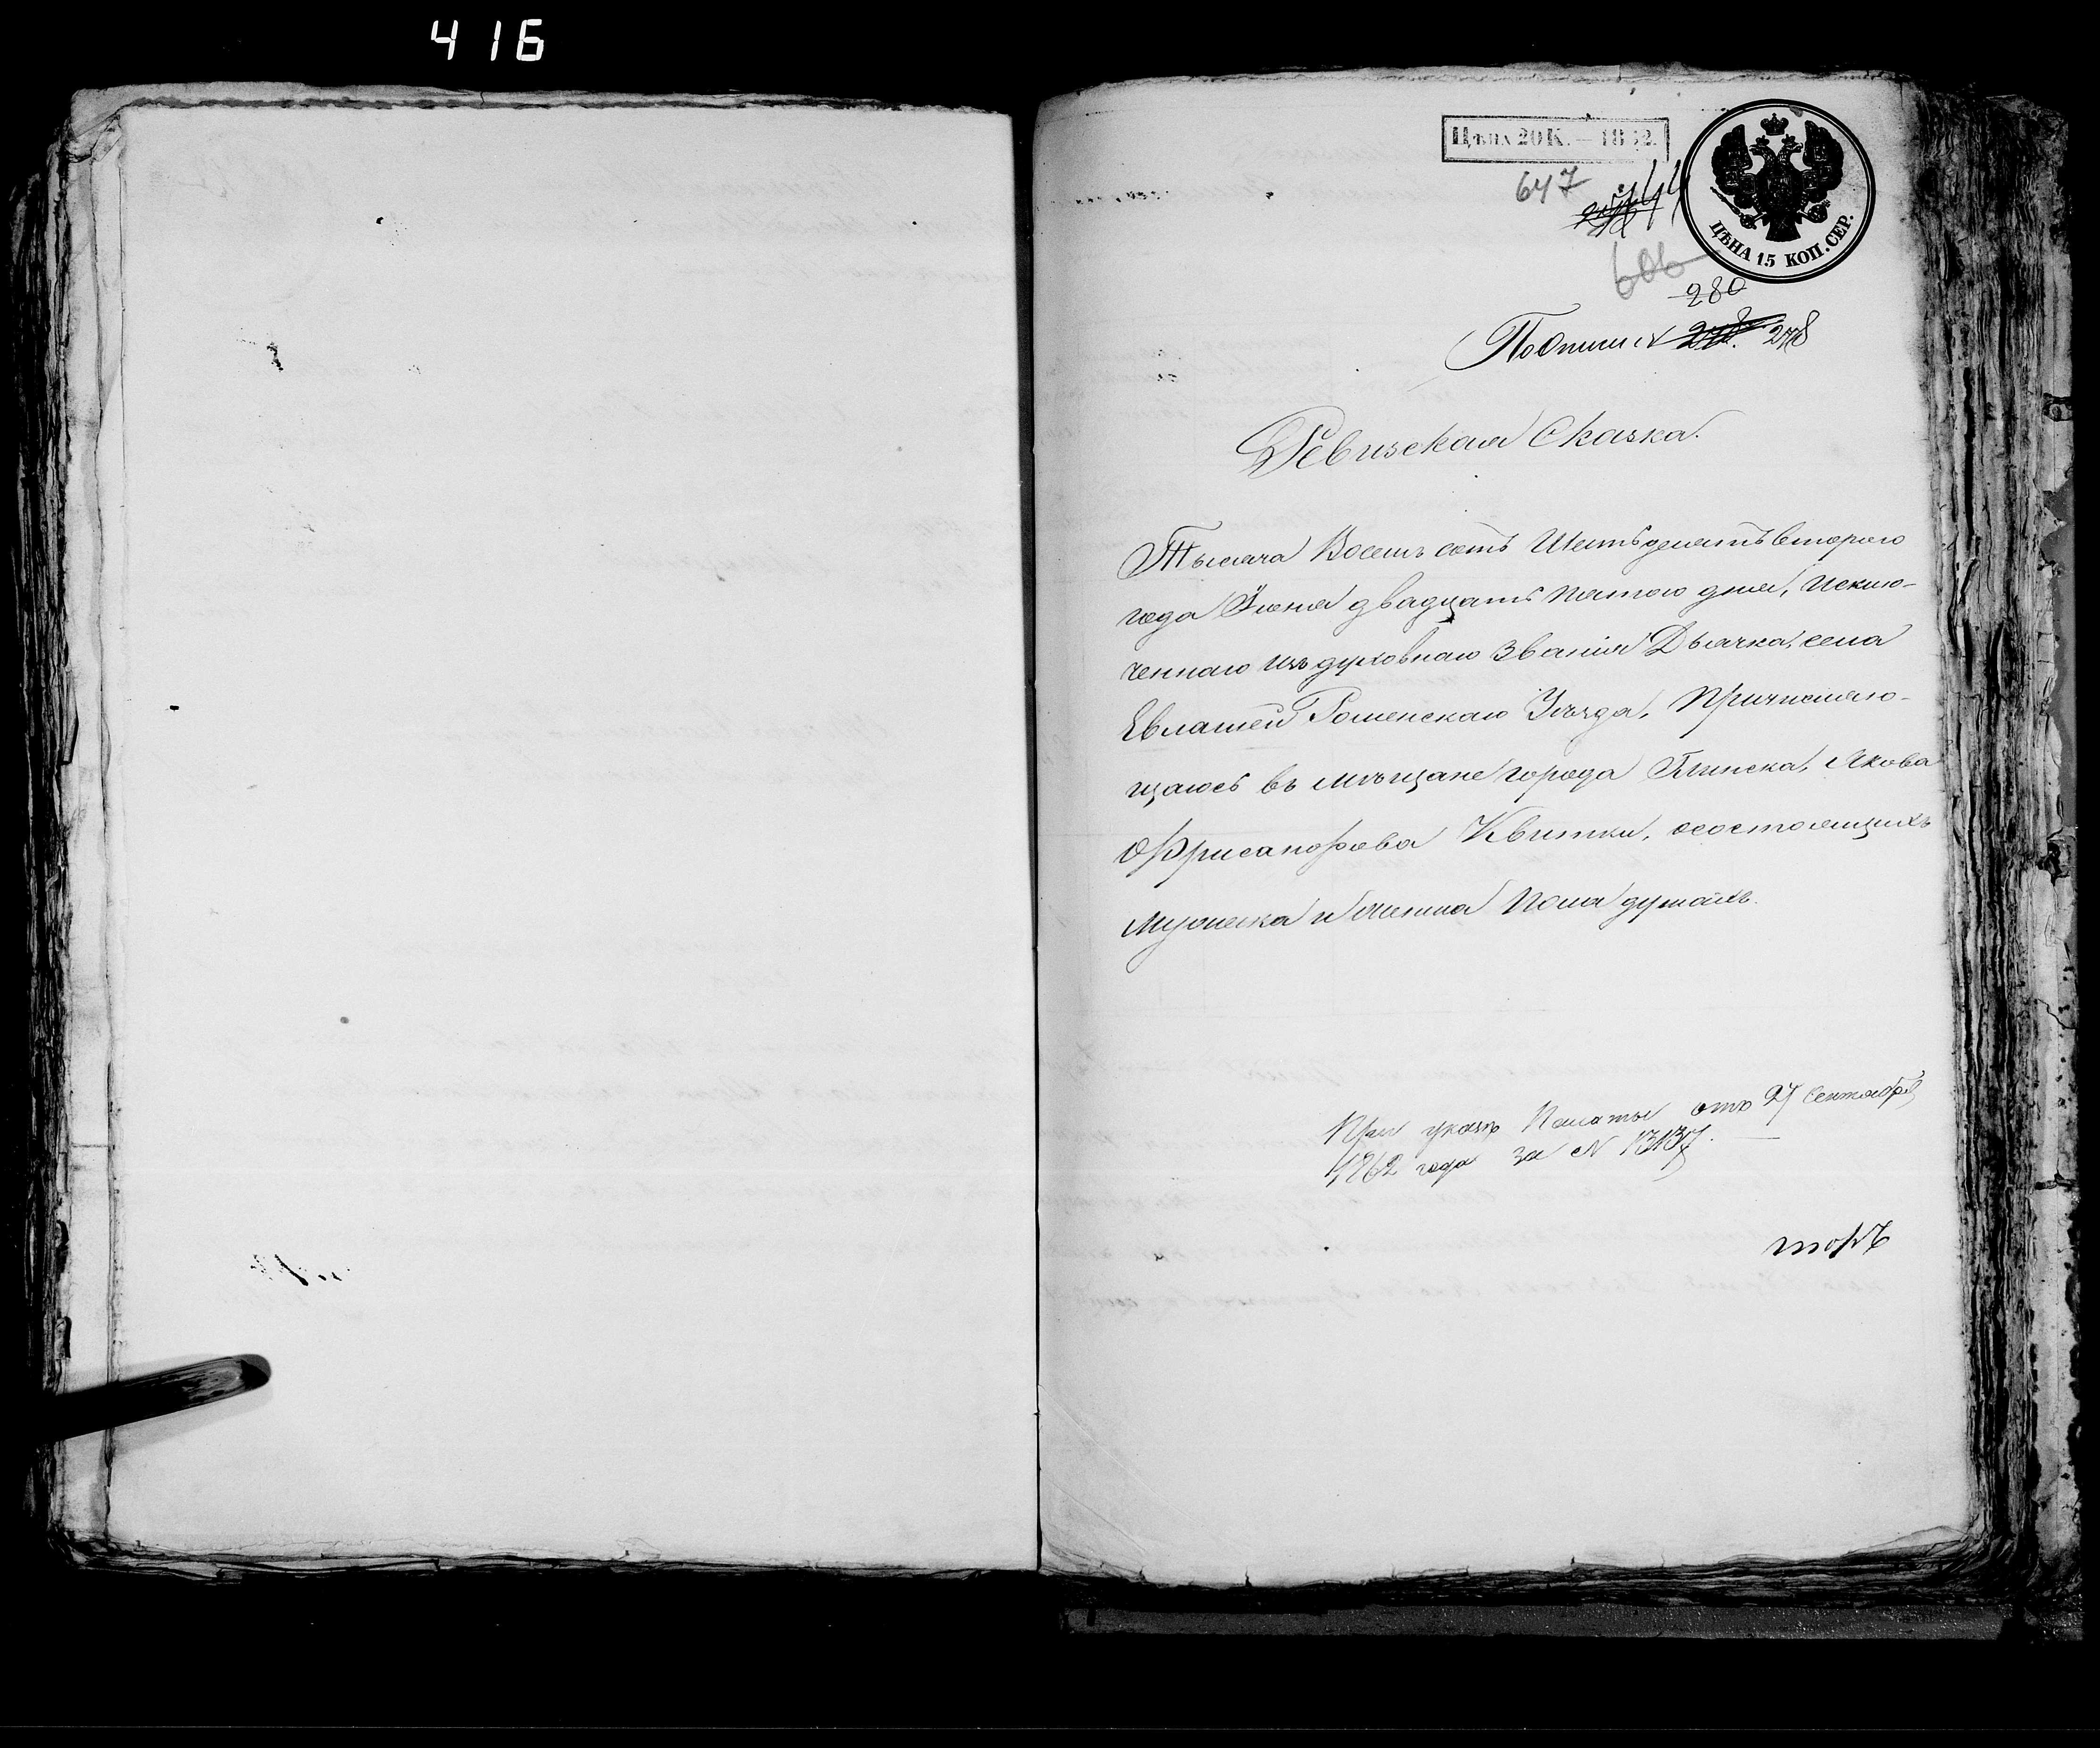 416
Цѣна 20 К. — 1862.
647
ЦѢНА 15 КОП. СЕР.
606
280
По описи № 278
Ревизская Сказка.
Тысяча Восемь сотъ Шестьдесятъ втораго
года Июня двадцать пятаго дня, Исклю-
ченнаго изъ духовнаго звания Дьячка, села
Евлашей Роменскаго Уѣзда, Причисляю-
щагося въ мѣщане города Глинска, Якова
Хрисанфова Квитки, о состоящихъ
мужеска и женска Пола душахъ.
При указѣ Палаты отъ 27 Сентября
1862 года за № 13137.